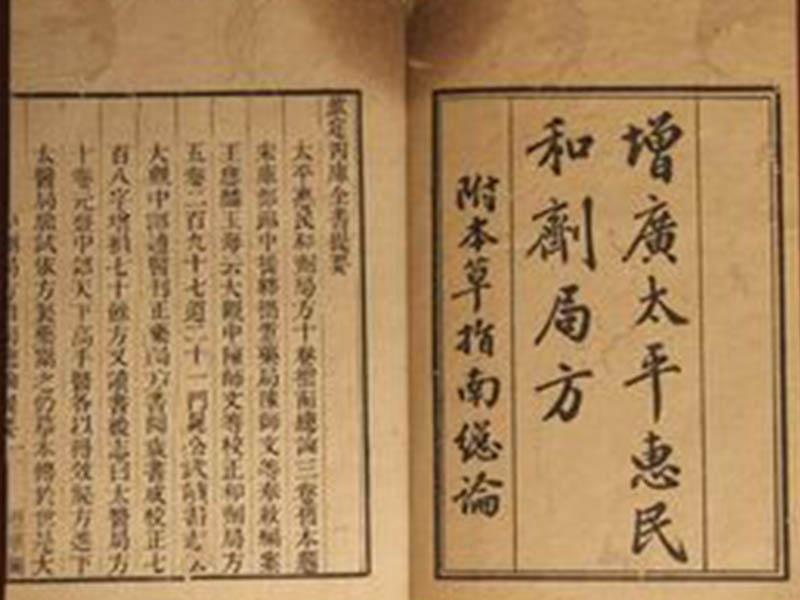 增廣太平惠民
和劑局方
附本草指南總論
欽定四庫全書提要
太平惠民和劑局方十卷附指南總論三卷舊本題
宋庫部郎中提轄措置藥局陳師文等奉敕編案
王應麟玉海云大觀中陳師文等校正和劑局方
五卷二百九十七道二十一門晁公武讀書志云
大觀中詔通醫刊正藥局方書閱歲書成校正七
百八字增損七十餘方又讀書後志曰太醫局方
十卷元豐中詔天下高手醫各以得效秘方進下
太醫局驗試依方製藥鬻之仍摹本傳於世是大